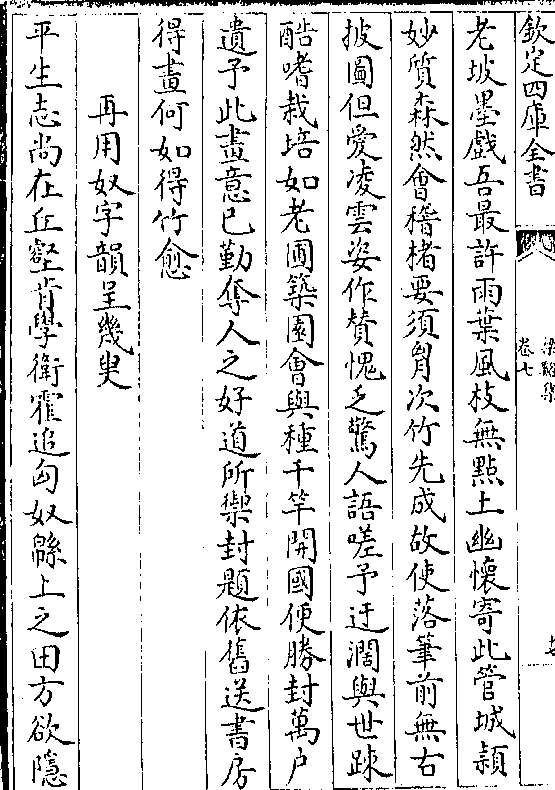 欽定四庫全書
卷七
老坡墨戲吾最許雨葉風枝無點土幽懷寄此管城穎
妙質森然會稽楮要須胷次竹先成故使落筆前無右
披圖但愛凌雲姿作賛愧乏驚人語嗟予迂濶與世踈
酷嗜栽培如老圃築園會與種千竿開國便勝封萬户
遺予此畫意已勤奪人之好道所禦封題依舊送書房
得畫何如得竹愈
再用奴字韻呈幾叟
平生志尚在丘壑肯學衛霍追匈奴緜上之田方欲隱